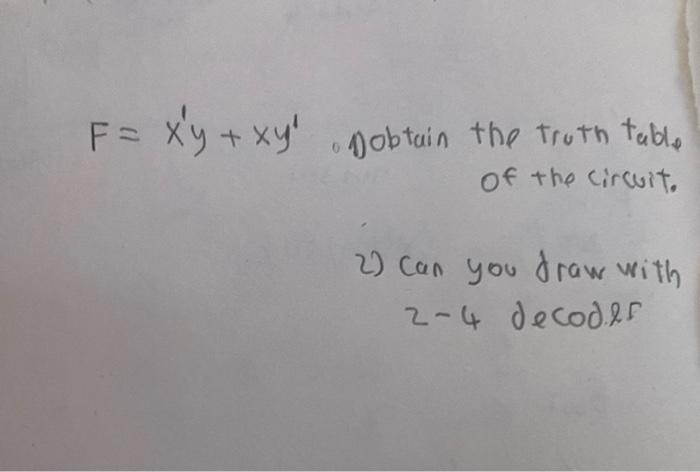 F = x'y + xy' . 1) obtain the truth table
of the circuit.
2) can you draw with
2-4 decoder